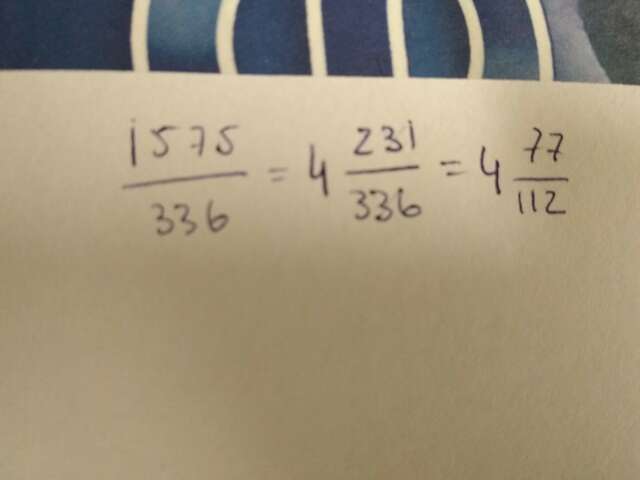 1575/336 = 4 231/336 = 4 77/112